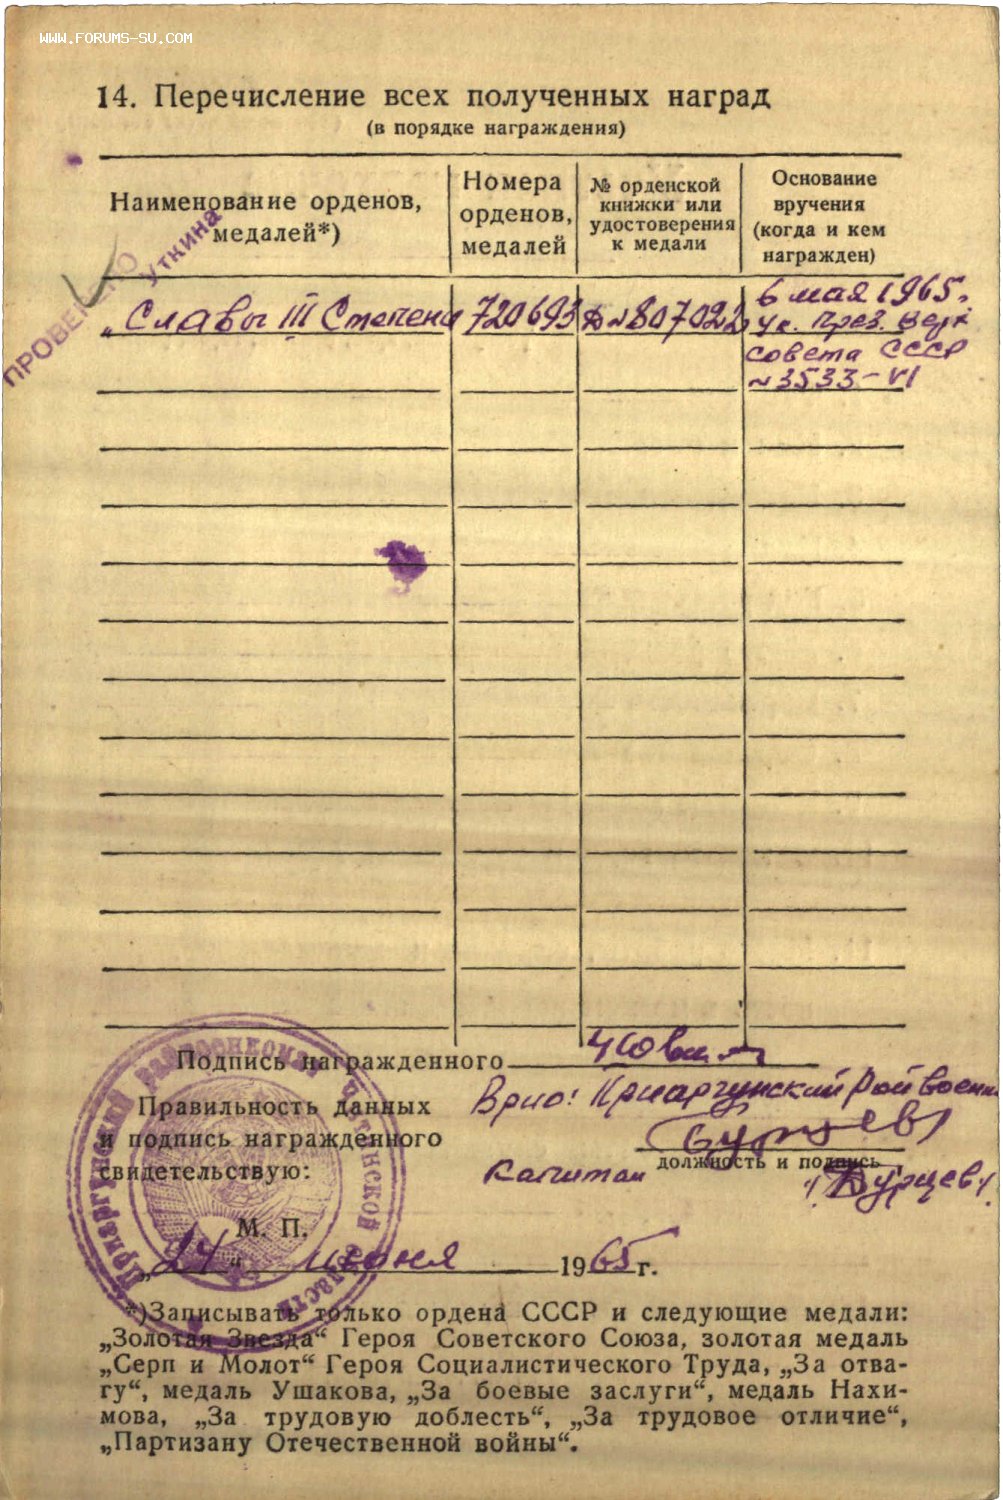 WWW.FORUMS-SU.COM
14. Перечисление всех полученных наград
(в порядке награждения)
Наименование орденов,
медалей*)
Номера
орденов,
медалей
№ орденской
книжки или
удостоверения
к медали
Основание
вручения
(когда и кем
награжден)
ПРОВЕРЕНО
Уткина
„Славы III Степени
720693
Д №807022
6 мая 1965г.
Ук. През. Верх
Совета СССР
№3533-VI
Подпись награжденного
Правильность данных
и подпись награжденного
свидетельствую:
Врио: Приаргунский Райвоенк
Бурцев
должность и подпись
Капитан
/Бурцев/
М. П.
„24“ июня 1965 г.
Приаргунский райвоенкомат Читинской области
*)Записывать только ордена СССР и следующие медали:
„Золотая Звезда“ Героя Советского Союза, золотая медаль
„Серп и Молот“ Героя Социалистического Труда, „За отва-
гу“, медаль Ушакова, „За боевые заслуги“, медаль Нахи-
мова, „За трудовую доблесть“, „За трудовое отличие“,
„Партизану Отечественной войны“.